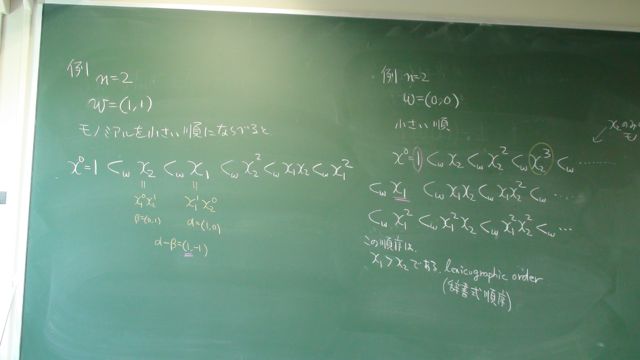 例 n=2
w=(1,1)
モノミアルを小さい順にならべると
x⁰=1 <_w x₂ <_w x₁ <_w x₂² <_w x₁x₂ <_w x₁²
" "
x₁⁰x₂¹ x₁¹x₂⁰
β=(0,1) α=(1,0)
α-β=(1,-1)
例 n=2
w=(0,0)
小さい順
x₂のみの
モ
x⁰=1 <_w x₂ <_w x₂² <_w x₂³ <_w ………
<_w x₁ <_w x₁x₂ <_w x₁x₂² <_w …
<_w x₁² <_w x₁²x₂ <_w x₁²x₂² <_w …
この順序は、
x₁>x₂である lexicographic order
(辞書式順序)